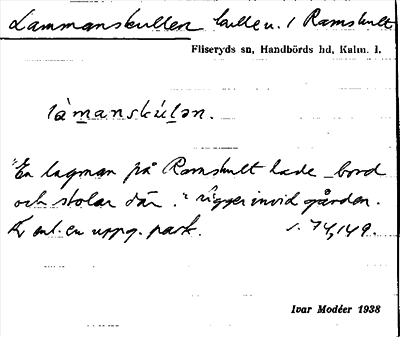 Lammanskullen kulle u. / Ramskult
Fliseryds sn, Handbörds hd, Kalm. l.
làmanskúlən.
"En lagman på Ramskult hade bord
och stolar där." Ligger invid gården.
enl. en uppg. park. s. 74, 149.
Ivar Modéer 1938